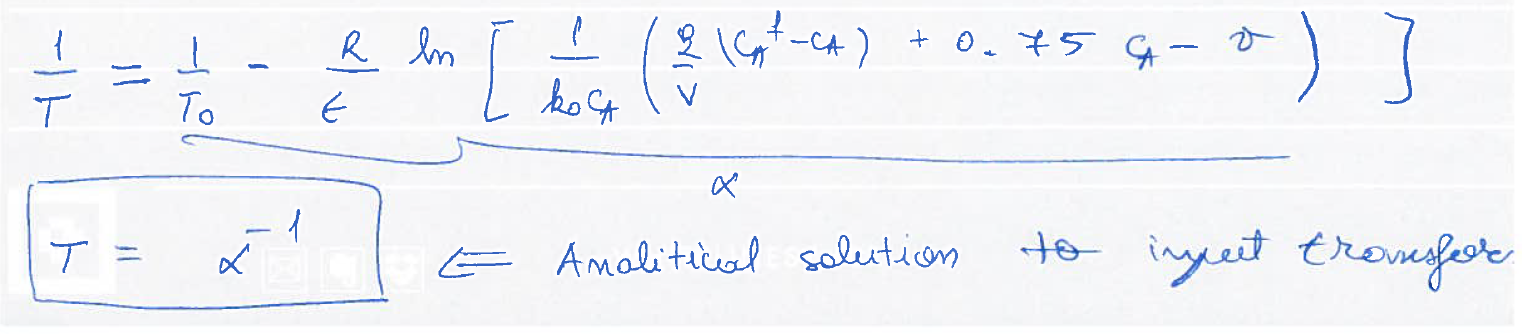 1/T = 1/T0 - R/E ln [ 1/(k0 CA) ( q/V (CA^f - CA) + 0.75 CA - v ) ]
α
T = α^-1 ⇐ Analitical solution to input transfor